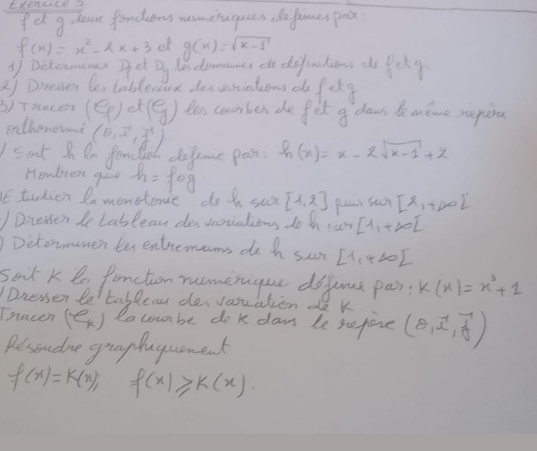 Exercice 3
f et g deux fonctions numériques définies par:
f(x) = x² - 2x + 3 et g(x) = √x-1
1) Déterminer Df et Dg les domaines de définitions de f et g
2) Dresser les tableaux des variations de f et g
3) Tracer (Cf) et (Cg) les courbes de f et g dans le même repère
orthonormé (o, i, j)
) Soit h la fonction définie par: h(x) = x - 2√x-1 + 2
Montrer que h = fog
) Etudier la monotonie de h sur [1,2] puis sur [2,+∞[
) Dresser le tableau des variations de h sur [1,+∞[
) Déterminer les extremums de h sur [1,+∞[
Soit K la fonction numérique définie par: K(x) = x³ + 1
) Dresser le tableau des variation de K
Tracer (CK) la courbe de K dans le repère (o, i, j)
Résoudre graphiquement
f(x) = K(x), f(x) ⩾ K(x).